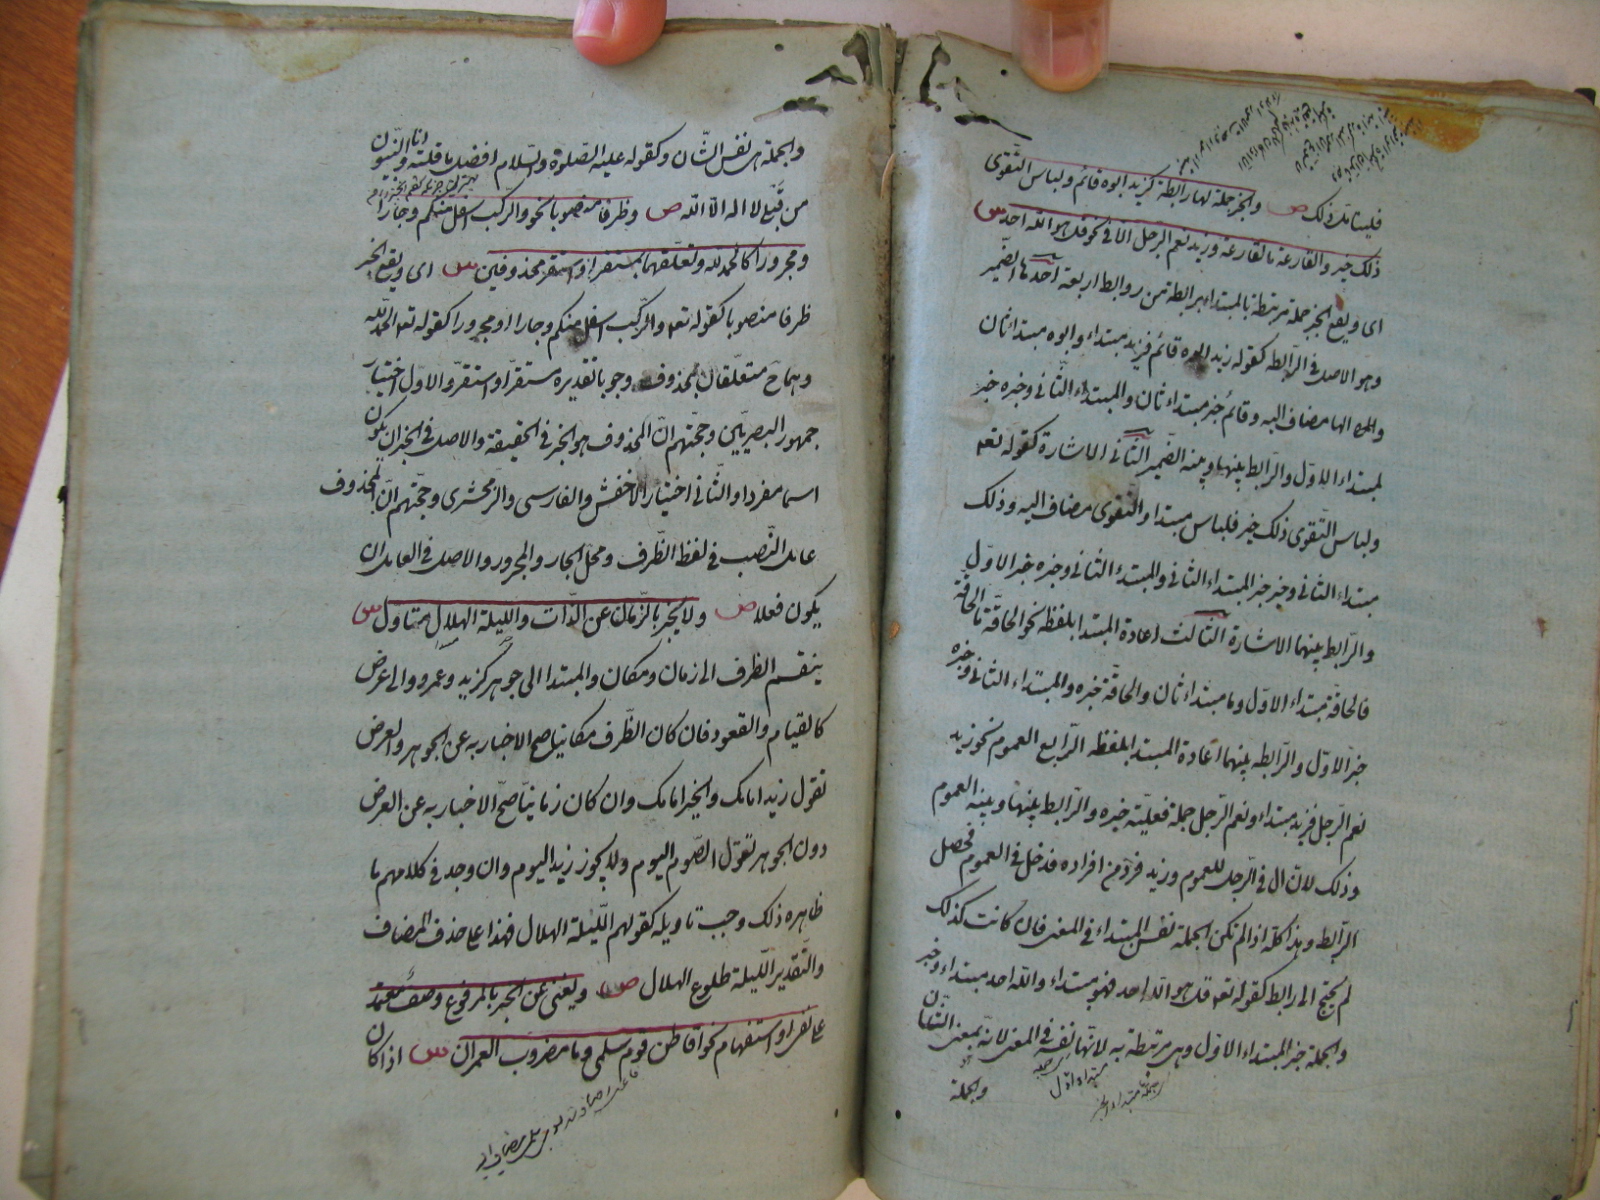 فليتأمل ذلك ص والخبر جملة لها رابطة كزيد ابوه قائم ولباس التقوى
ذلك خير والقارعة ما القارعة وزيد نعم الرجل الا في نحو قل هو الله احد س
اى ويقع الخبر جملة مرتبطة بالمبتدا برابطة من روابط اربعة احدها الضمير
وهو الاصل في الرابط كقوله زيد ابوه قائم فزيد مبتداء وابوه مبتداء ثان
والهاء مضاف اليه وقائم خبر مبتداء ثان والمبتداء الثانى وخبره خبر
لمبتداء الاول والرابط بينهما وبينه الضمير الثانى الاشارة كقوله تعم
ولباس التقوى ذلك خير فلباس مبتدا والتقوى مضاف اليه وذلك
مبتداء الثانى وخير خبر المبتداء الثانى والمبتدء الثانى وخبره خبر الاول
والرابط بينهما الاشارة الثالث اعادة المبتدا بلفظه نحو الحاقة ما الحاقة
فالحاقة مبتداء الاول وما مبتداء ثان والحاقة خبره والمبتداء الثانى وخبره
خبر الاول والرابطه بينهما اعادة المبتدا بلفظه الرابع العموم نحو زيد
نعم الرجل فزيد مبتداء ونعم الرجل جملة فعلية خبره والرابط بينها وبينه العموم
وذلك لان ال في الرجل للعموم وزيد فرد من افراده فدخل في العموم فحصل
الرابط وهذا كله اذا لم تكن الجملة نفس المبتداء في المعنى فان كانت كذلك
لم يحتج الى رابط كقوله تعم قل هو الله احد فهو مبتداء والله احد مبتداء وخبر
والجملة خبر المبتداء الاول وهى مرتبطة به لانها نفسه في المعنى لانه بمعنى الشان
والجملة
والجملة هى نفس الشان وكقوله عليه الصلوة والسلام افضل ما قلته انا والنبيون
من قبلى لا اله الا الله ص وظرفا منصوبا نحو والركب اسفل منكم وجارا
ومجرورا كالحمد لله وتعلقهما بمستقر او استقر محذوفين س اى ويقع الخبر
ظرفا منصوبا كقوله تعم والركب اسفل منكم وجارا ومجرورا كقوله تعم الحمد لله
وهما ح متعلقان بمحذوف وجوبا تقديره مستقر او استقر والاول اختيار
جمهور البصريين وحجتهم ان المحذوف هو الخبر في الحقيقة والاصل في الخبر ان يكون
اسما مفردا والثانى اختيار الاخفش والفارسى والزمخشرى وحجتهم ان المحذوف
عامل النصب في لفظ الظرف ومحل الجار والمجرور والاصل في العامل ان
يكون فعلا ص ولا يخبر بالزمان عن الذات والليلة الهلال متاول س
ينقسم الظرف الى زمان ومكان والمبتدا الى جوهر كزيد وعمرو والى عرض
كالقيام والقعود فان كان الظرف مكانيا صح الاخبار به عن الجوهر والعرض
تقول زيد امامك والخير امامك وان كان زمانيا صح الاخبار به عن العرض
دون الجوهر تقول الصوم اليوم ولا يجوز زيد اليوم وان وجد في كلامهم ما
ظاهره ذلك وجب تاويله كقولهم الليلة الهلال فهذا على حذف المضاف
والتقدير الليلة طلوع الهلال ص ويغنى عن الخبر بالمرفوع وصف معتمد
على نفى او استفهام نحو اقاطن قوم سلمى وما مضروب العمران س اذا كان